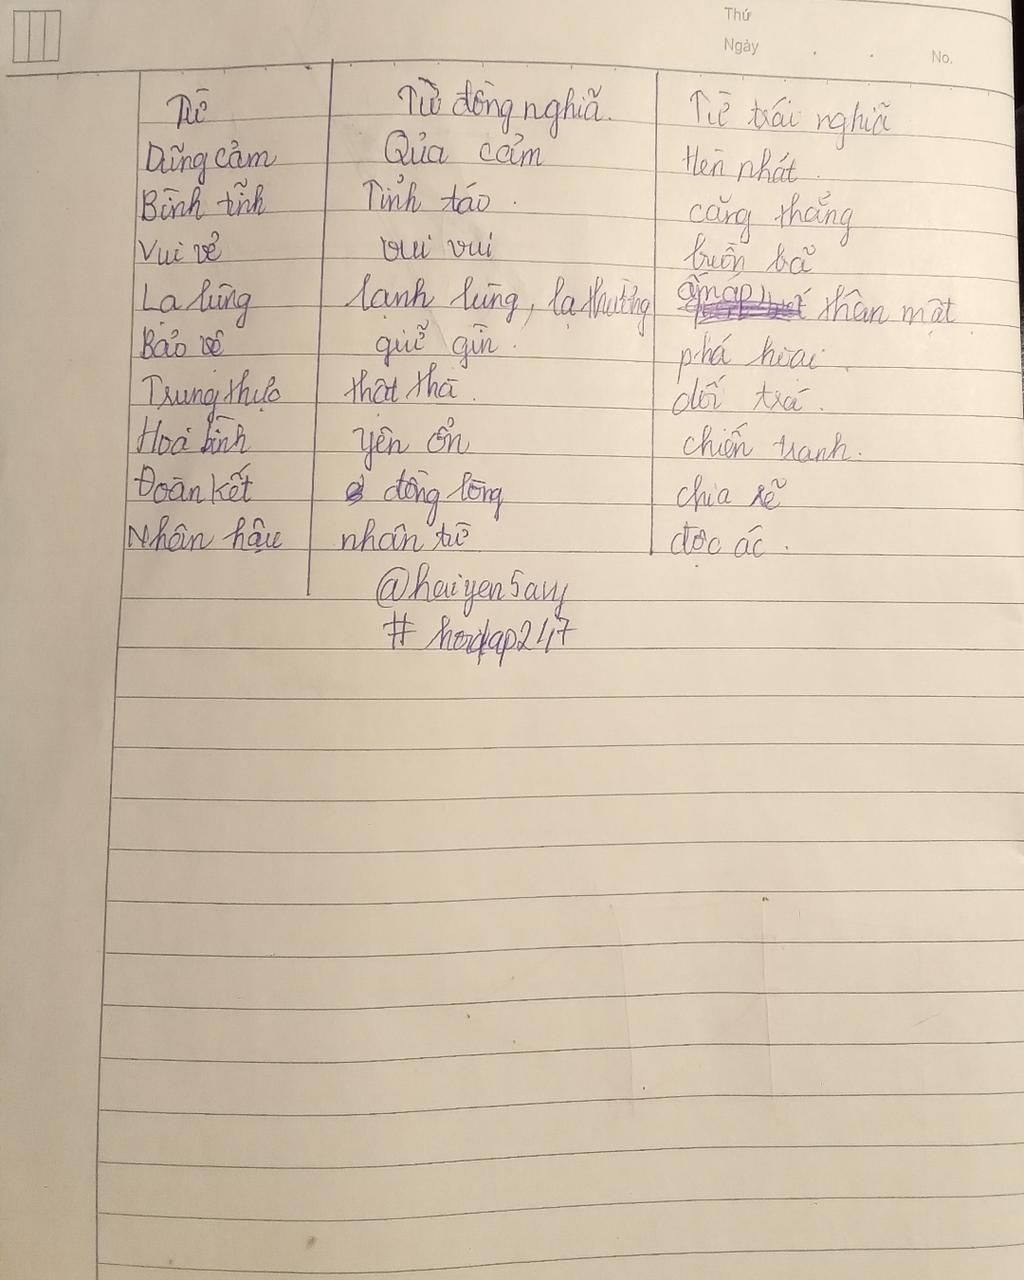 Thứ
Ngày . . No.
Từ Từ đồng nghĩa. Từ trái nghĩa
Dũng cảm Qủa cảm Hèn nhát.
Bình tĩnh Tỉnh táo. căng thẳng
Vui vẻ vui vui buồn bã
Lạ lùng lạnh lùng, lạ thường ấm áp thân mật
Bảo vệ giữ gìn. phá hoại.
Trung thực thật thà. dối trá.
Hoà bình yên ổn chiến tranh.
Đoàn kết đồng lòng chia rẽ
Nhân hậu nhân từ độc ác.
@haiyen5avy
# hoidap247